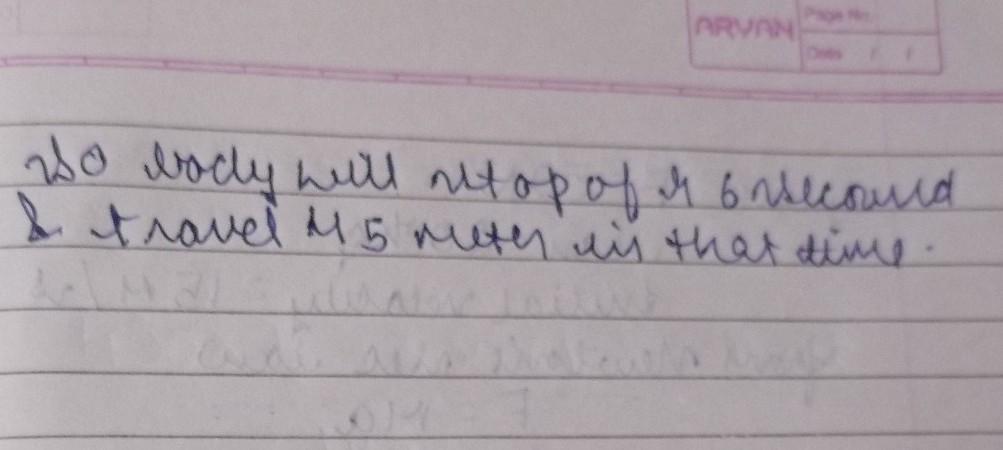 ARYAN
Page No.
Date / /
So body will stop of r 6 second
& travel 45 meter in that time.